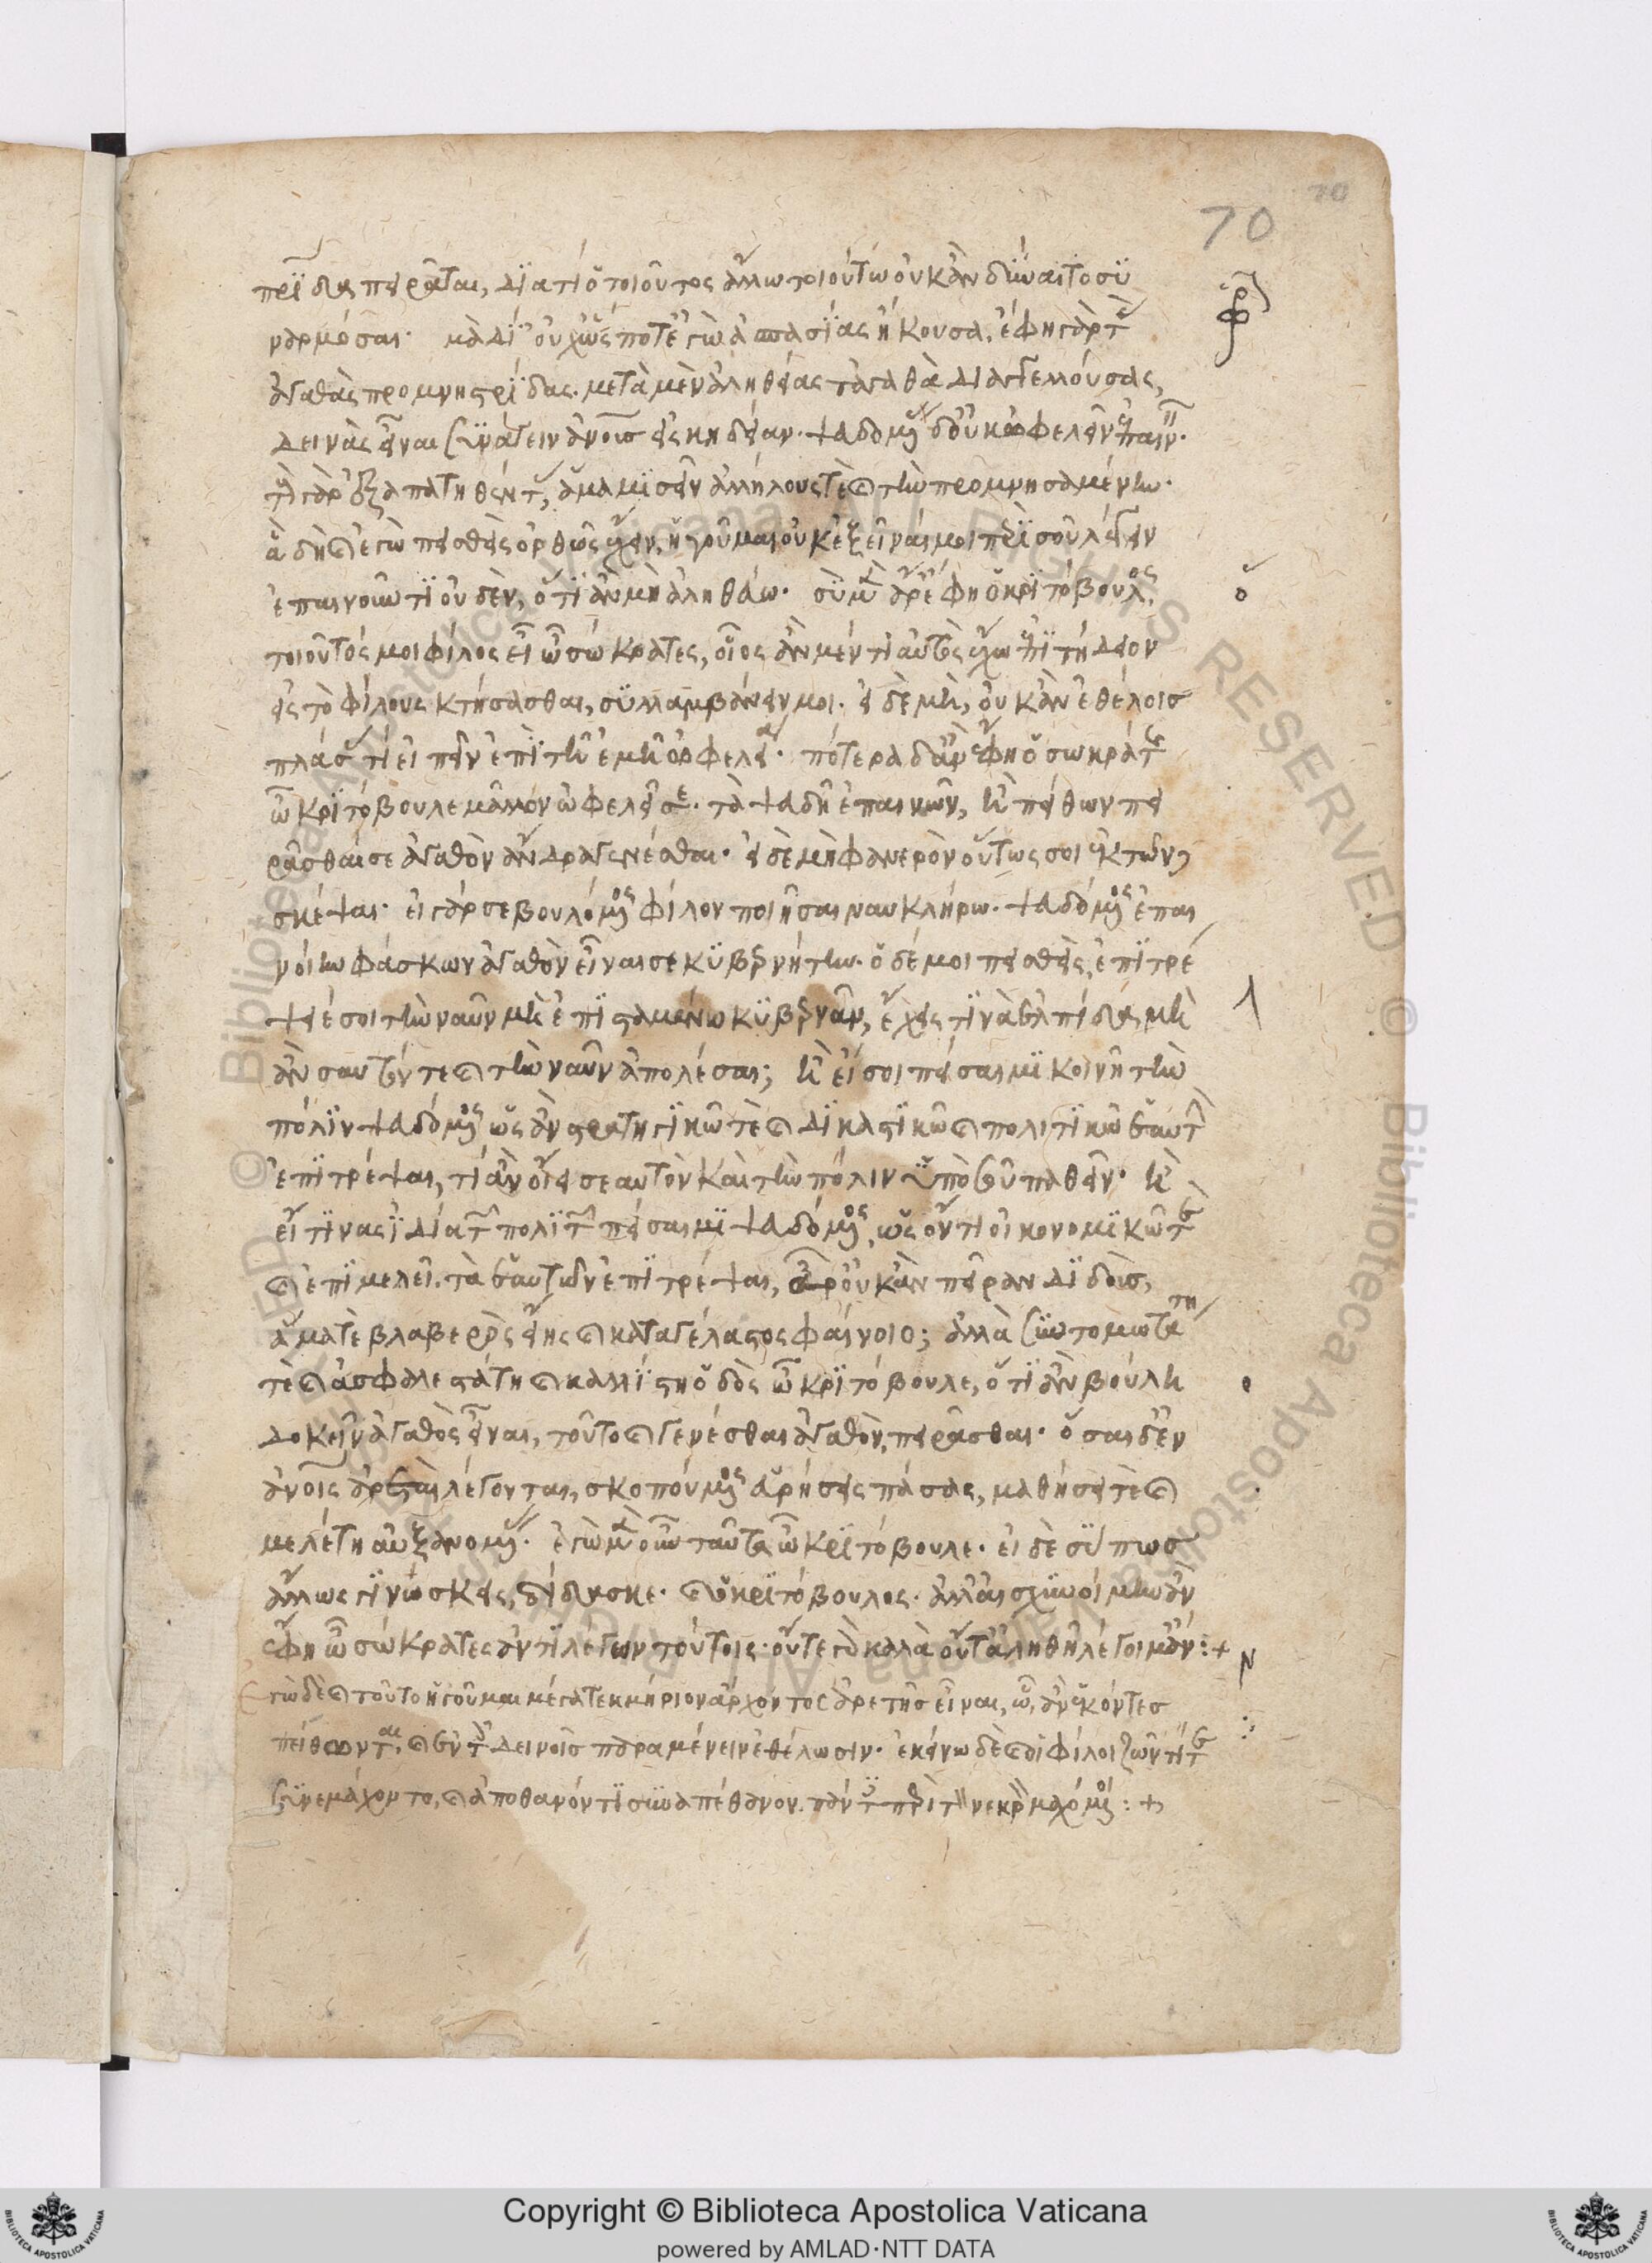 70
70
πρίδας πειρᾶται, διατί ὁ τοιοῦτος ἄλλω τοιούτω οὐκ ἂν δύναιτο συ
ναρμόσαι· μὰ δί' οὐχ ὥς ποτε ἐγὼ ἀσπασίας ἤκουσα, ἔφη γὰρ τὰς
ἀγαθὰς προμνηστρίδας. μετὰ μὲν ἀληθείας τἀγαθὰ διαγγελλούσας,
δεινὰς εἶναι συνάγειν ἀνοις εἰς κηδείαν· ψευδομένας δ' οὐκ ὠφελεῖν ἐπαινούσας·
τοὺς γὰρ ἐξαπατηθέντας, ἅμα μισεῖν ἀλλήλους τὲ καὶ τὴν προμνησαμένην·
ἃ δὴ καὶ ἐγὼ πεισθεὶς ὀρθῶς ἔχειν, ἡγοῦμαι οὐκ ἐξεῖναί μοι περὶ σοῦ λέγειν
ἐπαινοῦντι οὐδὲν, ὅτι ἂν μὴ ἀληθεύω· σὺ μὲν ἄρα ἔφη ὁ κριτόβουλος,
τοιοῦτός μοι φίλος εἶ ὦ σώκρατες, οἷος ἂν μέν τι αὐτὸς ἔχω ἐπιτήδειον
εἰς τὸ φίλους κτήσασθαι, συλλαμβάνειν μοι· εἰ δὲ μὴ, οὐκ ἂν ἐθέλοις
πλάσας τί εἰπεῖν ἐπὶ τῆ ἐμῆ ὠφελεία· πότερα δ' ἂν ἔφη ὁ σωκράτης
ὦ κριτόβουλε μᾶλλον ὠφελεῖν σε· τὰ ψευδῆ ἐπαινῶν, ἢ πείθων πει
ρᾶσθαί σε ἀγαθὸν ἄνδρα γενέσθαι· εἰ δὲ μὴ φανερὸν οὕτως σοι ἐκ τῶνδε
σκέψαι· εἰ γάρ σε βουλόμενος φίλον ποιῆσαι ναυκλήρω· ψευδόμενος ἐπαι
νοίην φάσκων ἀγαθὸν εἶναί σε κυβερνήτην· ὁ δέ μοι πεισθεὶς, ἐπιτρέ
ψειέ σοι τὴν ναῦν μὴ ἐπισταμένω κυβερνᾶν, ἔχεις τινὰ ἐλπίδα μὴ
ἂν σαυτόν τε καὶ τὴν ναῦν ἀπολέσαι; ἢ εἴ σοι πείσαιμι κοινῆ τὴν
πόλιν ψευδόμενος ὡς ἂν στρατηγικῶ τὲ καὶ δικαστικῶ καὶ πολιτικῶ ἑαυτὴν
ἐπιτρέψαι, τί ἂν οἴει σεαυτὸν καὶ τὴν πόλιν ὑπὸ σοῦ παθεῖν· ἢ
εἴ τινας ἰδία τῶν πολιτῶν πείσαιμι ψευδόμενος, ὡς ὄντι οἰκονομικῶ τε
καὶ ἐπιμελεῖ. τὰ ἑαυτῶν ἐπιτρέψαι, ἆρ' οὐκ ἂν πεῖραν διδοὺς,
ἅμα τε βλαβερὸς εἴης καὶ καταγέλαστος φαίνοιο; ἀλλὰ συντομωτάτη
τὲ καὶ ἀσφαλεστάτη καὶ καλλίστη ὁδὸς ὦ κριτόβουλε, ὅτι ἂν βούλη
δοκεῖν ἀγαθὸς εἶναι, τοῦτο καὶ γενέσθαι ἀγαθὸν, πειρᾶσθαι· ὅσαι δ' ἐν
ἀνοις ἀρεταὶ λέγονται, σκοπούμενος εὑρήσεις πάσας, μαθήσει τὲ καὶ
μελέτη αὐξανομένας· ἐγὼ μὲν οὖν ταῦτα ὦ κριτόβουλε· εἰ δὲ σύ πως
ἄλλως γινώσκεις, δίδασκε· καὶ ὁ κριτόβουλος· ἀλλ' αἰσχυνοίμην ἂν
ἔφη ὦ σώκρατες ἀντιλέγων τούτοις· οὔτε γὰρ καλὰ οὔτ' ἀληθῆ λέγοιμ' ἄν:+
ἐγὼ δὲ καὶ τοῦτο ἡγοῦμαι μέγα τεκμήριον ἄρχοντος ἀρετῆς εἶναι, ὧ, ἂν ἑκόντες
πείθωνται, καὶ ἐν τοῖς δεινοῖς παραμένειν ἐθέλωσιν· ἐκείνω δὲ καὶ οἱ φίλοι ζῶντί τε
συνεμάχοντο, καὶ ἀποθανόντι συναπέθανον. πάντες περὶ τὸν νεκρὸν μαχόμενοι:+